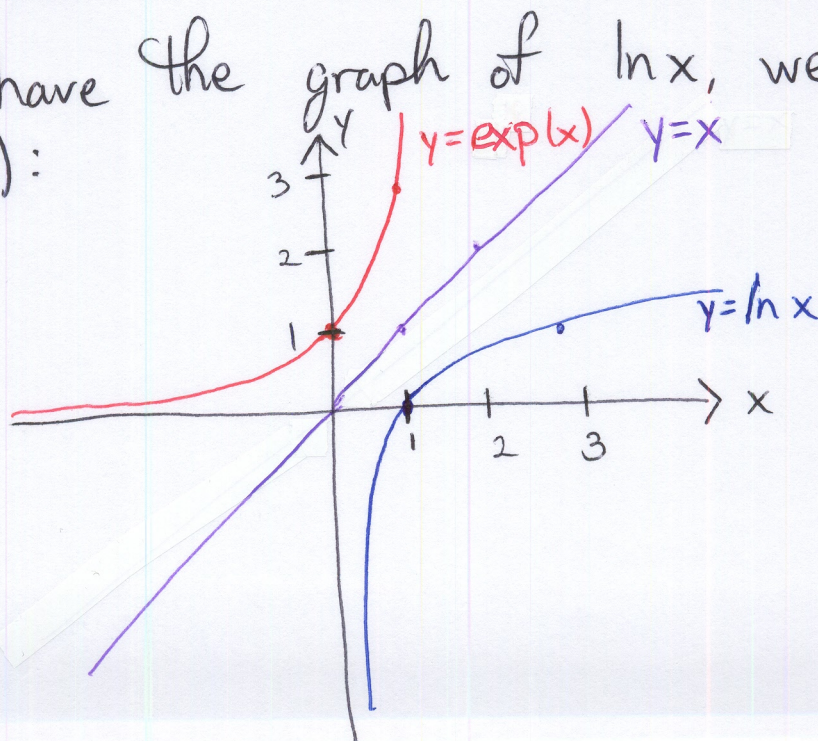 have the graph of ln x, we
) :
y
y=exp(x)
y=x
3
2
1
y=ln x
x
1
2
3